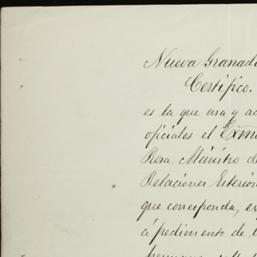 Nueva Granad
Certifico.
es la que usa y a
oficiales el Exm
Rosa, Ministro d
Relaciones Esterio
que corresponda, e
á pedimento de l